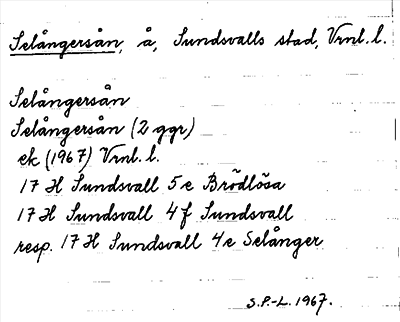 Selångersån, å, Sundsvalls stad, Vrnl. l.
Selångersån
Selångersån (2 ggr)
ek (1967) Vrnl. l.
17 H Sundsvall 5 e Brödlösa
17 H Sundsvall 4 f Sundsvall
resp. 17 H Sundsvall 4 e Selånger
S.P.-L. 1967.